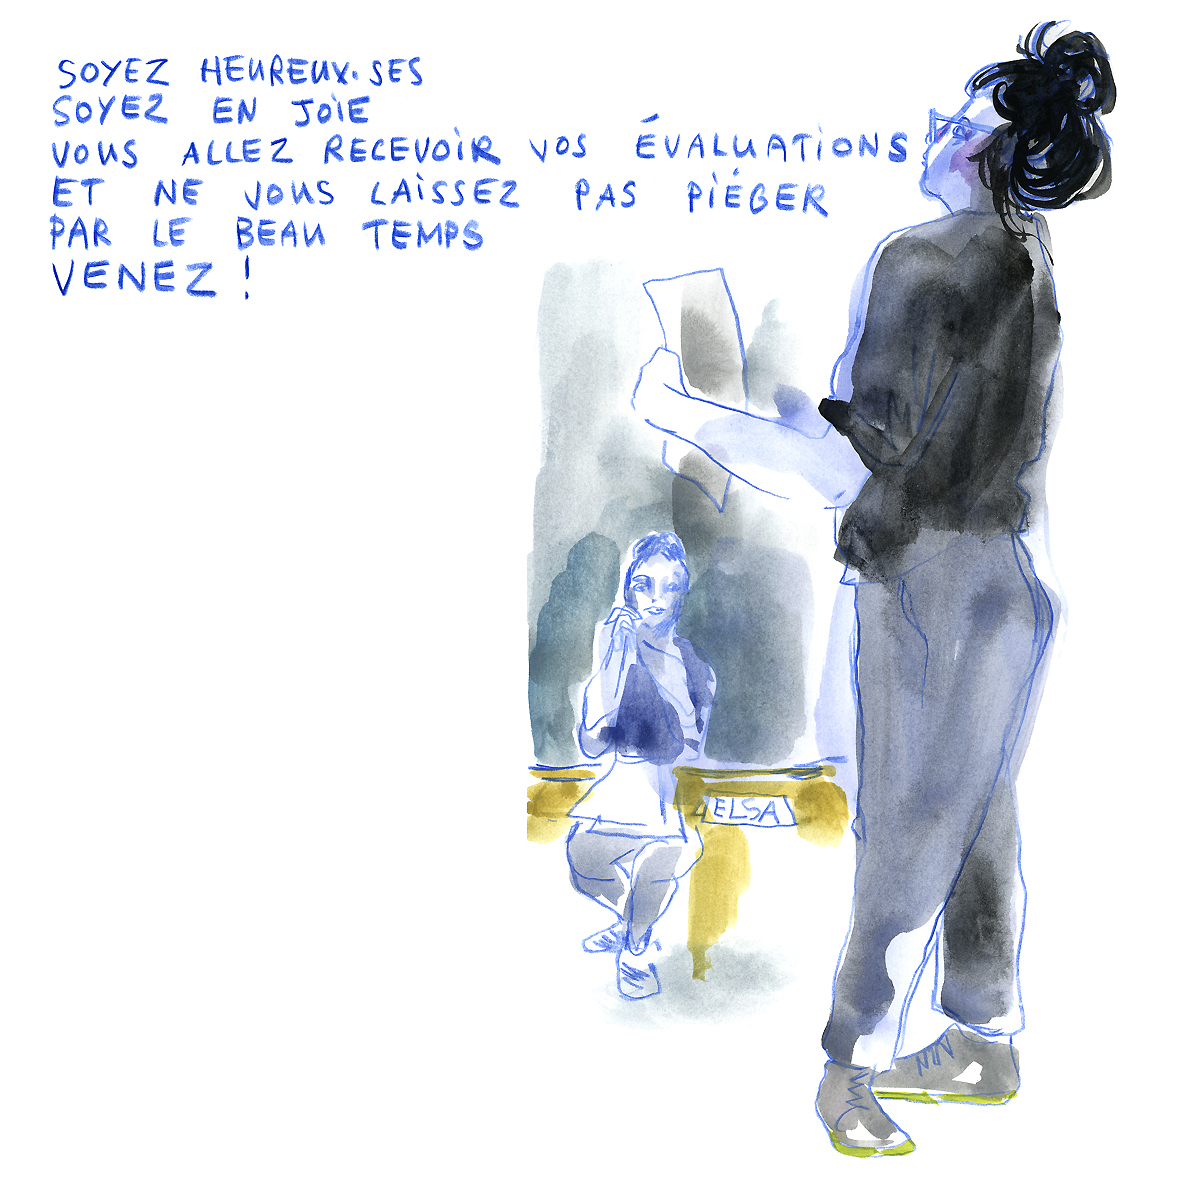 SOYEZ HEUREUX.SES
SOYEZ EN JOIE
VOUS ALLEZ RECEVOIR VOS ÉVALUATIONS
ET NE VOUS LAISSEZ PAS PIÉGER
PAR LE BEAU TEMPS
VENEZ !
ELSA